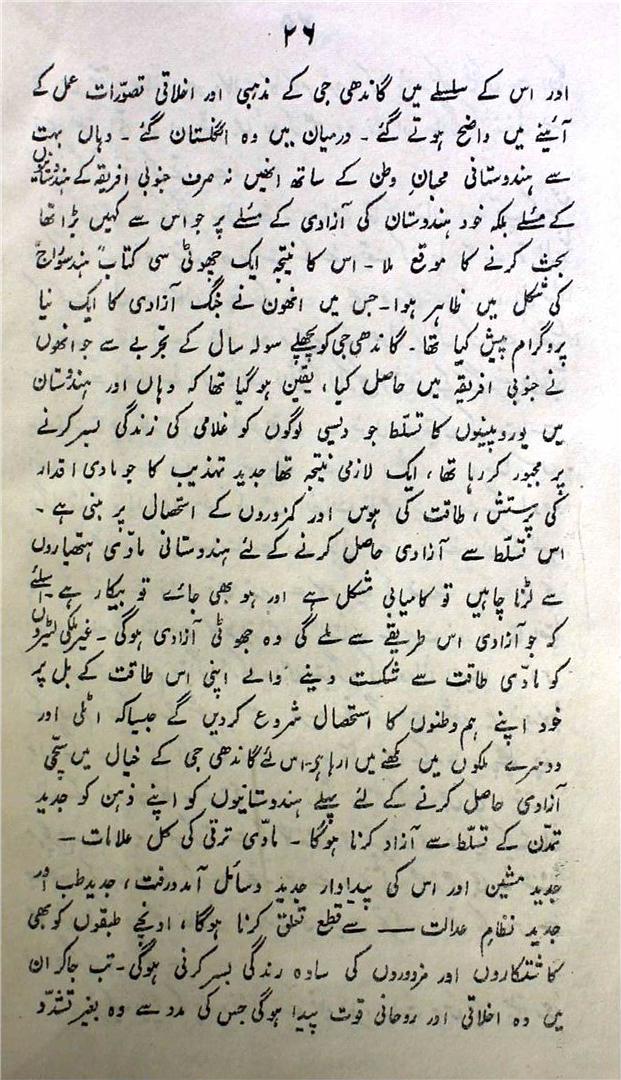 ۲۶
اور اس کے سلسلے میں گاندھی جی کے مذہبی اور اخلاقی تصوّرات عمل کے
آئینے میں واضح ہوتے گئے ۔ درمیان میں وہ انگلستان گئے ۔ وہاں بہت
سے ہندوستانی محبانِ وطن کے ساتھ انھیں نہ صرف جنوبی افریقہ کے ہندوستانیوں
کے مسئلے بلکہ خود ہندوستان کی آزادی کے مسئلے پر جو اس سے کہیں بڑا تھا
بحث کرنے کا موقع ملا ۔ اس کا نتیجہ ایک چھوٹی سی کتاب "ہند سوراج"
کی شکل میں ظاہر ہوا ۔ جس میں انھوں نے جنگ آزادی کا ایک نیا
پروگرام پیش کیا تھا ۔ گاندھی جی کو پچھلے سولہ سال کے تجربے سے جو انھوں
نے جنوبی افریقہ میں حاصل کیا ، یقین ہو گیا تھا کہ وہاں اور ہندوستان
میں یوروپینوں کا تسلّط جو دیسی لوگوں کو غلامی کی زندگی بسر کرنے
پر مجبور کر رہا تھا ، ایک لازمی نتیجہ تھا جدید تہذیب کا جو مادی اقدار
کی پرستش ، طاقت کی ہوس اور کمزوروں کے استحصال پر مبنی ہے ۔
اس تسلّط سے آزادی حاصل کرنے کے لئے ہندوستانی مادّی ہتھیاروں
سے لڑنا چاہیں تو کامیابی مشکل ہے اور ہو بھی جائے تو بیکار ہے ۔ اسلئے
کہ جو آزادی اس طریقے سے ملے گی وہ جھوٹی آزادی ہوگی ۔ غیر ملکی لٹیروں
کو مادّی طاقت سے شکست دینے والے اپنی اس طاقت کے بل پر
خود اپنے ہم وطنوں کا استحصال شروع کر دیں گے جیسا کہ اٹلی اور
دوسرے ملکوں میں دیکھنے میں آرہا ہے ۔ اس لئے گاندھی جی کے خیال میں سچّی
آزادی حاصل کرنے کے لئے پہلے ہندوستانیوں کو اپنے ذہن کو جدید
تمدّن کے تسلّط سے آزاد کرنا ہوگا ۔ مادّی ترقی کی کل علامات —
جدید مشین اور اس کی پیداوار جدید وسائل آمدورفت ، جدید طب اور
جدید نظامِ عدالت — سے قطع تعلق کرنا ہوگا ، اونچے طبقوں کو بھی
کاشتکاروں اور مزدوروں کی سادہ زندگی بسر کرنی ہوگی ۔ تب جاکر ان
میں وہ اخلاقی اور روحانی قوت پیدا ہوگی جس کی مدد سے وہ بغیر تشدّد